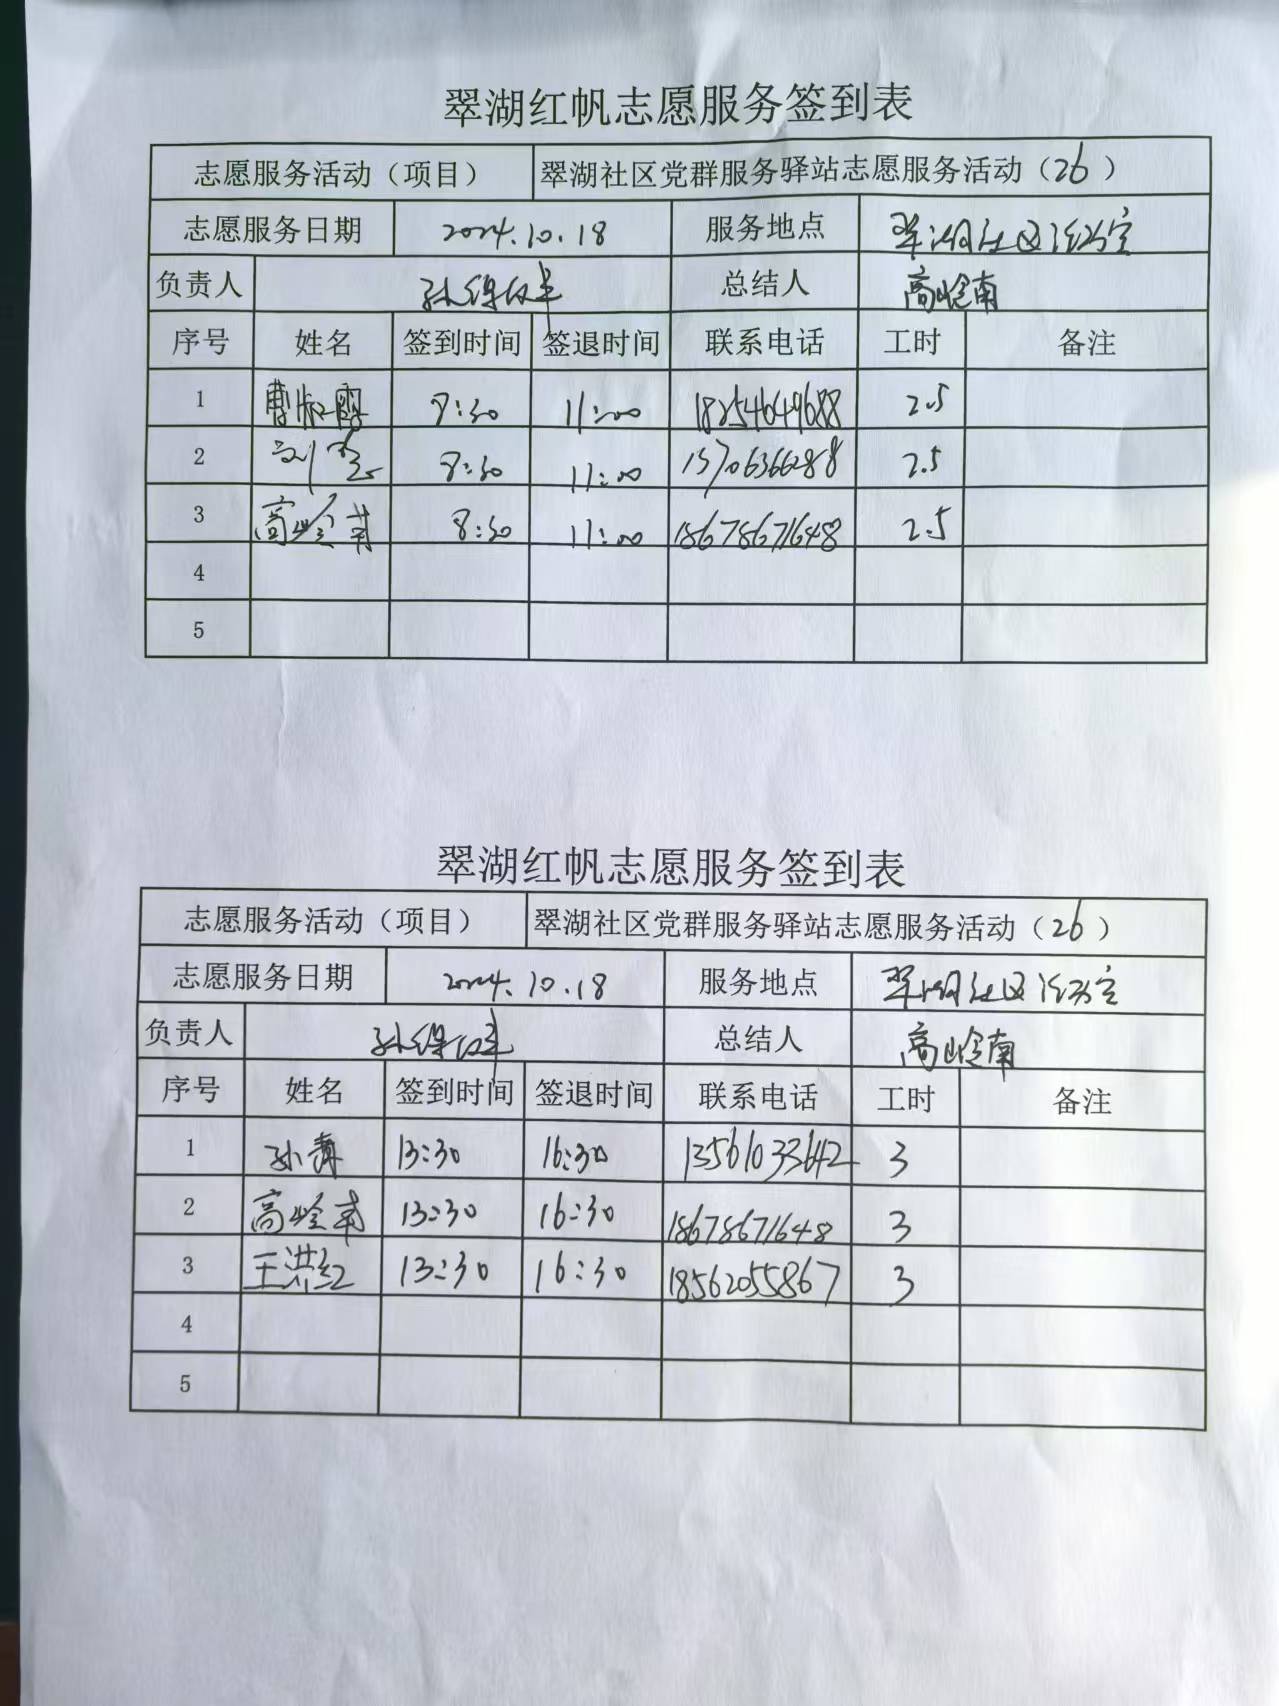 翠湖红帆志愿服务签到表
志愿服务活动（项目） 翠湖社区党群服务驿站志愿服务活动（26）
志愿服务日期 2024.10.18 服务地点 翠湖社区活动室
负责人 孙保健 总结人 高岭南
序号 姓名 签到时间 签退时间 联系电话 工时 备注
1 曹 8:30 11:00 18254649688 2.5
2 刘 8:30 11:00 13706366288 2.5
3 高岭南 8:30 11:00 18678671648 2.5
4
5
翠湖红帆志愿服务签到表
志愿服务活动（项目） 翠湖社区党群服务驿站志愿服务活动（26）
志愿服务日期 2024.10.18 服务地点 翠湖社区活动室
负责人 孙保健 总结人 高岭南
序号 姓名 签到时间 签退时间 联系电话 工时 备注
1 孙 13:30 16:30 13561033642 3
2 高岭南 13:30 16:30 18678671648 3
3 王洪红 13:30 16:30 18562055867 3
4
5